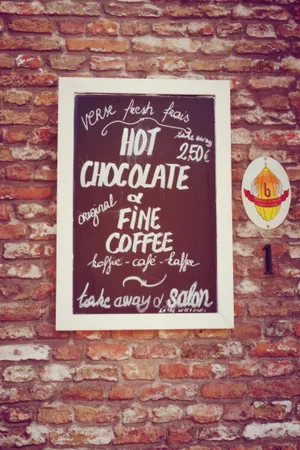 VERSE fresh frais
take away
HOT
2,50€
CHOCOLATE
&
original
FINE
COFFEE
koffie - café - kaffee
take away & salon
6